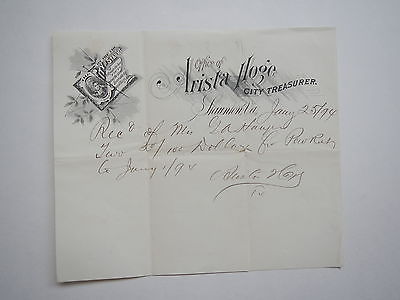 Office of
Arista Hoge
CITY TREASURER.
Staunton Va Jany 25/94
Rec'd of Mrs
Two /100 Dollars for Pew Rent
to Jany 1/94
Arista Hoge